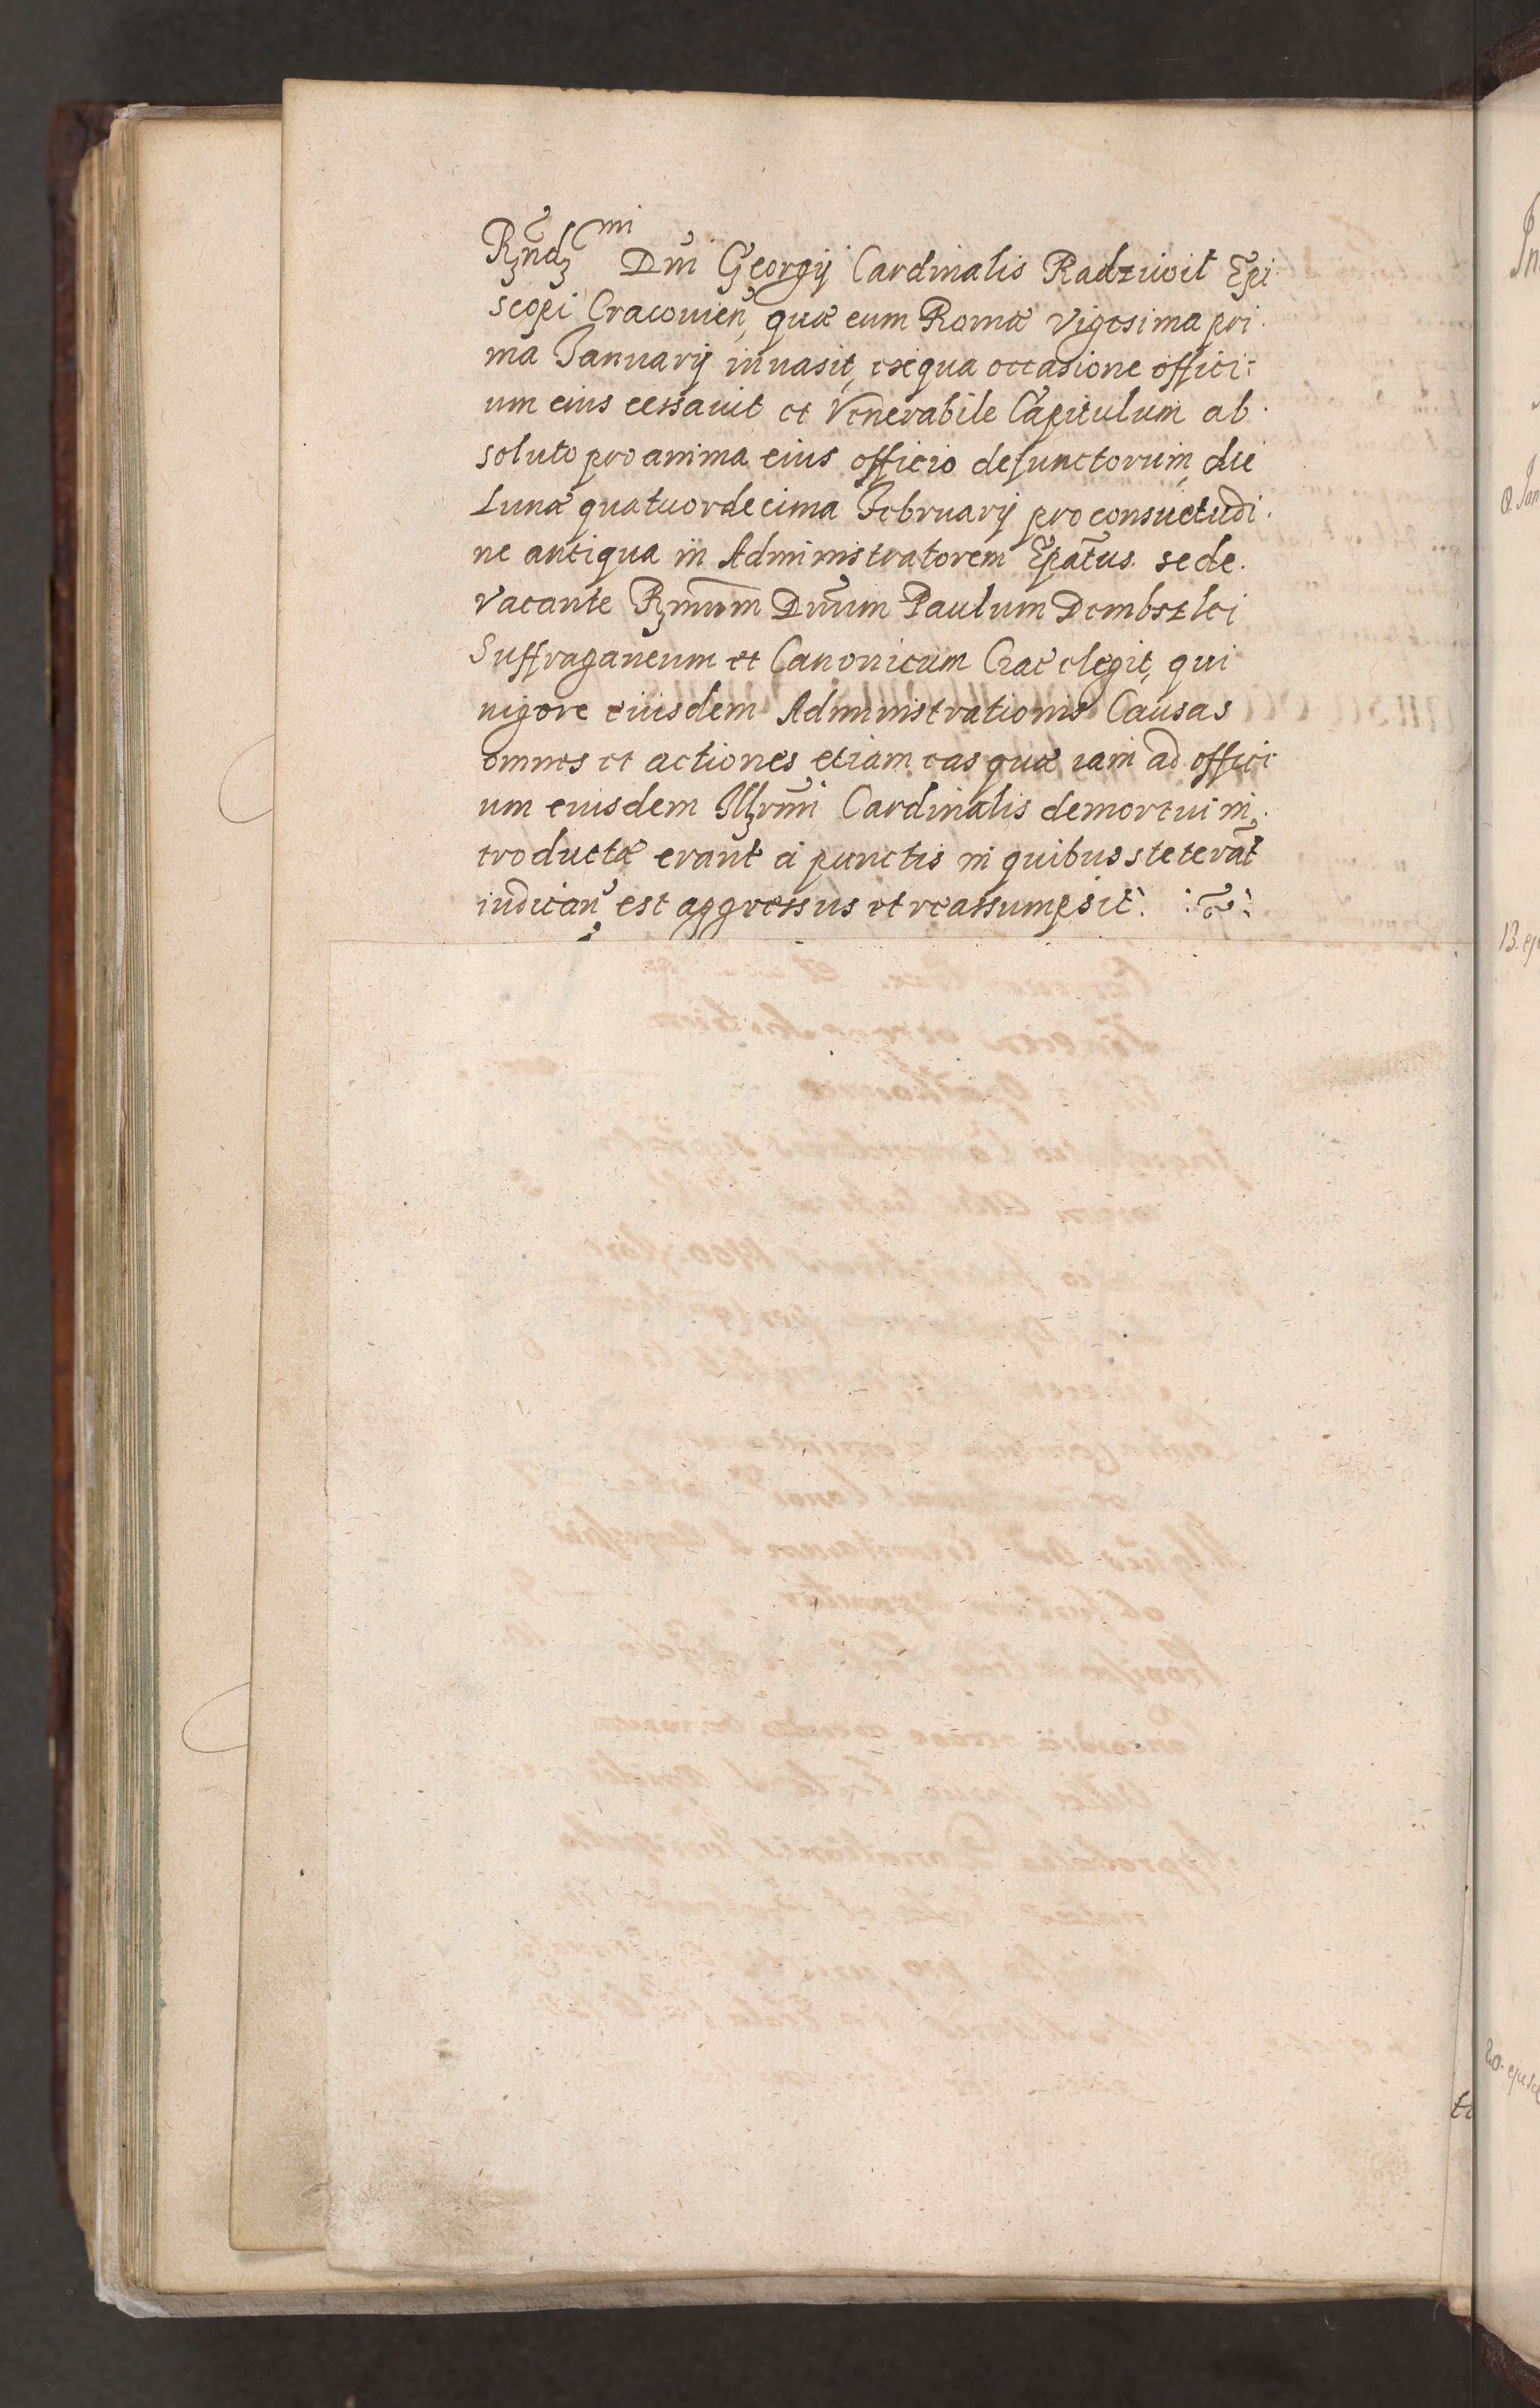 Rndmi Dni Georgij Cardinalis Radziwil Epi
scopi Cracouien, quæ eum Romæ Vigesima pri
ma Januarij inuasit, ex qua occasione offici:
um eius cessauit et Venerabile Capitulum ab
soluto pro anima eius officio defunctorum, die
Lunæ quatuordecima Februarij pro consuetudi
ne antiqua in Administratorem Epatus sede
Vacante Rmum Dnum Paulum Dembszkj
Suffraganeum et Canonicum Crac elegit, qui
uigore eiusdem Administrationis Causas
omnes et actiones etiam eas quæ iam ad offici
um eiusdem Illrmi Cardinalis demortui in
troductæ erant à punctis in quibus steterãt
iudican est aggressus et reassumpsit.
In
13. eju
20. ejusd